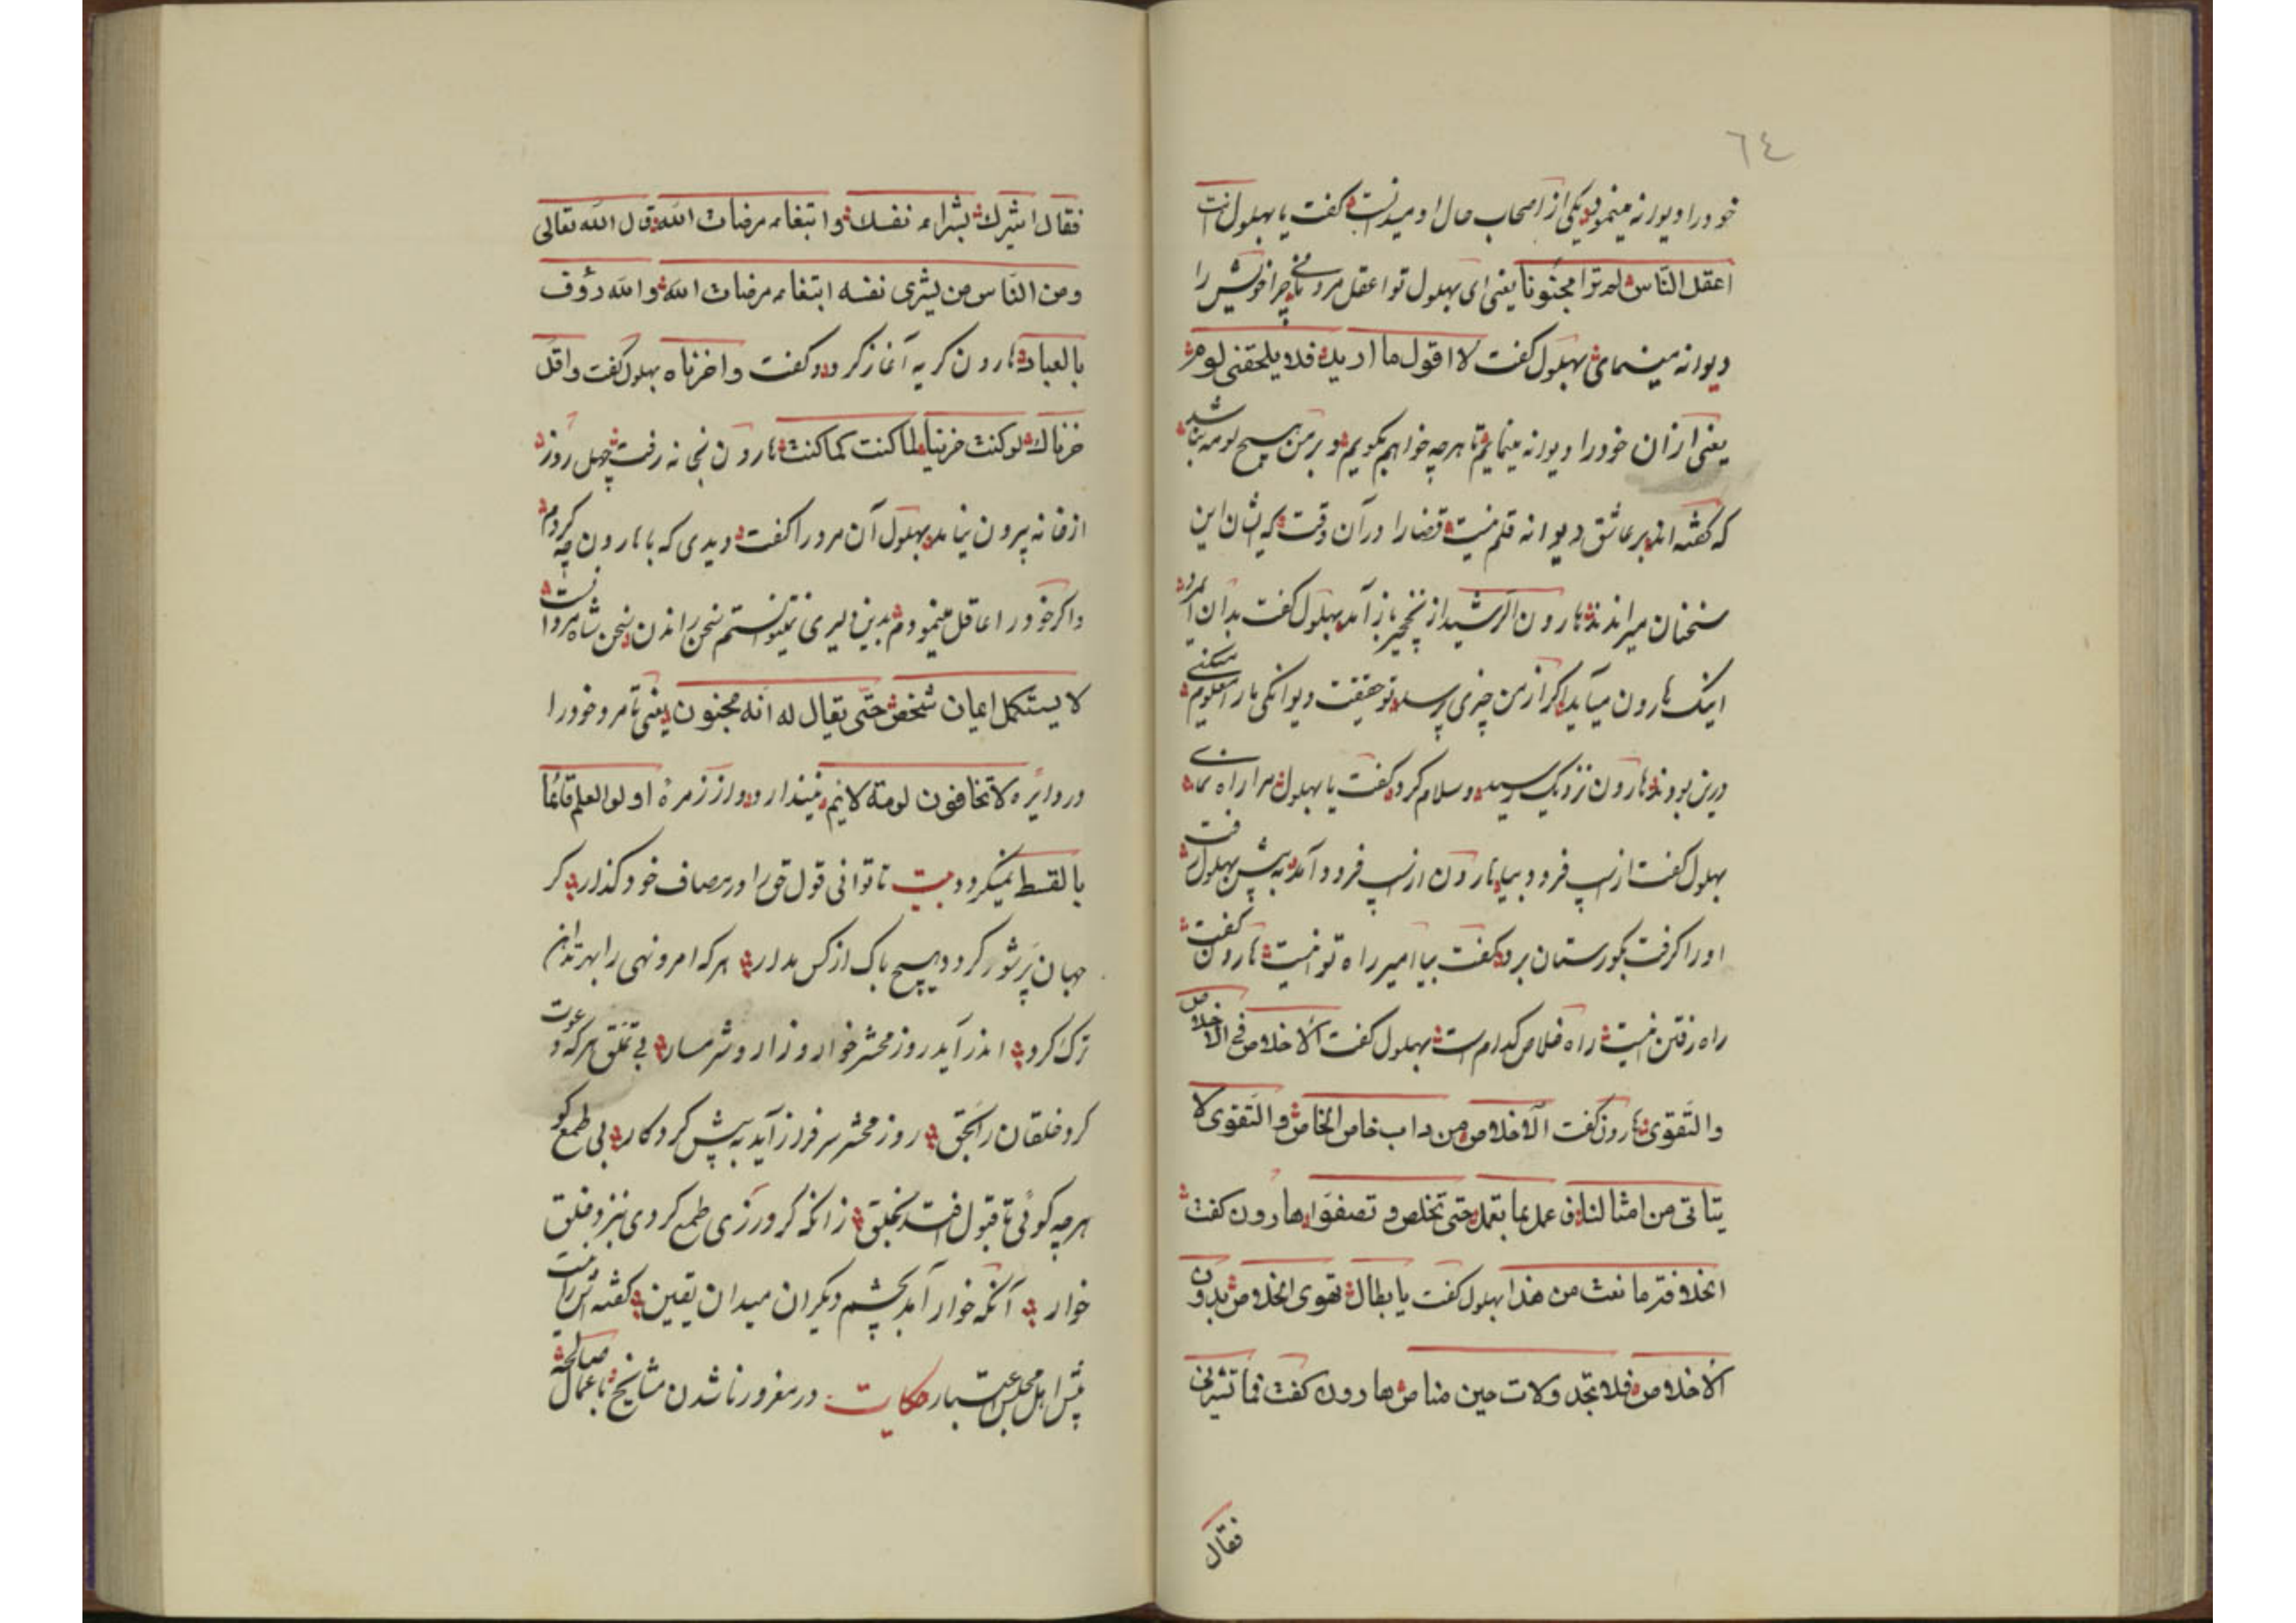 ٦٤
خود را دیوانه مینمود یکی از اصحاب حال او میدانست کفت یا بهلول انت
اعقل الناس لم تُرا مجنونا یعنی ای بهلول تو اعقل مردمانی چرا خویش را
دیوانه مینمای بهلول کفت لا اقول ما ارید فلا یلحقنی لومة
یعنی از آن خود را دیوانه مینمایم تا هرچه خواهم بکویم و بر من هیچ لومه نباشد
که کفته اند بر عاشق دیوانه قلم نیست قضا را در آن وقت که ایشان این
سخنان میراندند هارون الرشید از نخجیر باز آمد بهلول کفت بدان مرد
اینک هارون میآید اکر از من چیزی پرسد تو حقیقت دیوانکی ما را معلوم مکنی
درین بودند هارون نزدیک رسید و سلام کرد و کفت یا بهلول مرا راه نمای
بهلول کفت از اسپ فرود بیا هارون از اسپ فرود آمد به پیش بهلول رفت
او را کرفت بکورستان برد و کفت بیا امیر راه تو اینست هارون کفت
راه رفتن اینست راه خلاص کدام است بهلول کفت الاخلاص فی الاخلاص
والتقوی هارون کفت الاخلاص من داب خاص الخاص والتقوی لا
یتاتی من امثالنا فی عمل بما تعمل حتی تخلص و تصفو هارون کفت
بهلول کفت یا بطال تقوی الاخلاص بدون
الاخلاص فلا تجد ولات حین مناص هارون کفت فما تبشرنی
فقال
فقال ابشرک بشراء نفسک وابتغاء مرضات الله قال الله تعالی
ومن الناس من یشری نفسه ابتغاء مرضات الله والله رؤف
بالعباد هارون کریه آغاز کرد و کفت واحزناه بهلول کفت واقل
حزناک لو کنت حزینا لما کنت کما کنت هارون بخانه رفت چهل روز
از خانه بیرون نیامد بهلول آن مرد را کفت دیدی که با هارون چه کردم
و اکر خود را عاقل مینمودم بدین دلیری نمیتوانستم سخن راندن سخن شاه مردانست
لا یستکمل ایمان شخص حتی یقال له انه مجنون یعنی تا مرد خود را
در دایره لا تخافون لومة لائم نیندازد و از زمرهٔ اولو العلم قائما
بالقسط نمیکردد بیت تا توانی قول حق را در مصاف خود کذار کر
جهان پر شور کردد هیچ باک از کس مدار هرکه امر و نهی را بهر
ترک کرد اندر آید روز محشر خوار و زار و شرمسار بی تملق هرکه دعوت
کرد خلقان را بحق روز محشر سرفراز آید به پیش کردکار بی طمع کو
هرچه کوئی تا قبول افتد بخلق زانکه کر ورزی طمع کردی نزد خلق
خوار آنکه خوار آمد بچشم دیکران میدان یقین کفتهٔ
پیش اهل مجلس اعتبار حکایت در مغرور ناشدن مشایخ باعمال صالحه